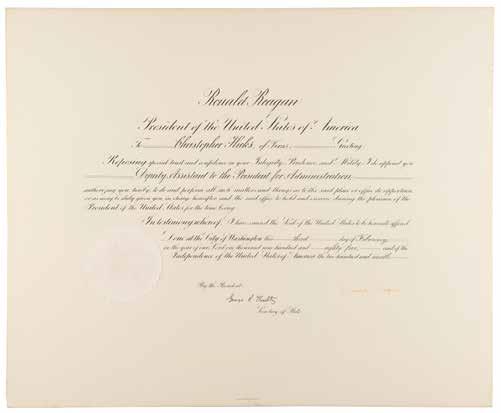 Ronald Reagan
President of the United States of America
To Christopher Hicks, of Texas, Greeting
Reposing special trust and confidence in your Integrity, Prudence, and Ability I do appoint you
Deputy Assistant to the President for Administration
authorizing you hereby to do and perform all such matters and things as to the said place or office do appertain
or as may be duly given you in charge hereafter and the said office to hold and exercise during the pleasure of the
President of the United States for the time being
In testimony whereof I have caused the Seal of the United States to be hereunto affixed
Done at the City of Washington this third day of February
in the year of our Lord one thousand nine hundred and eighty five, and of the
Independence of the United States of America the two hundred and ninth
By the President
George P. Shultz
Secretary of State